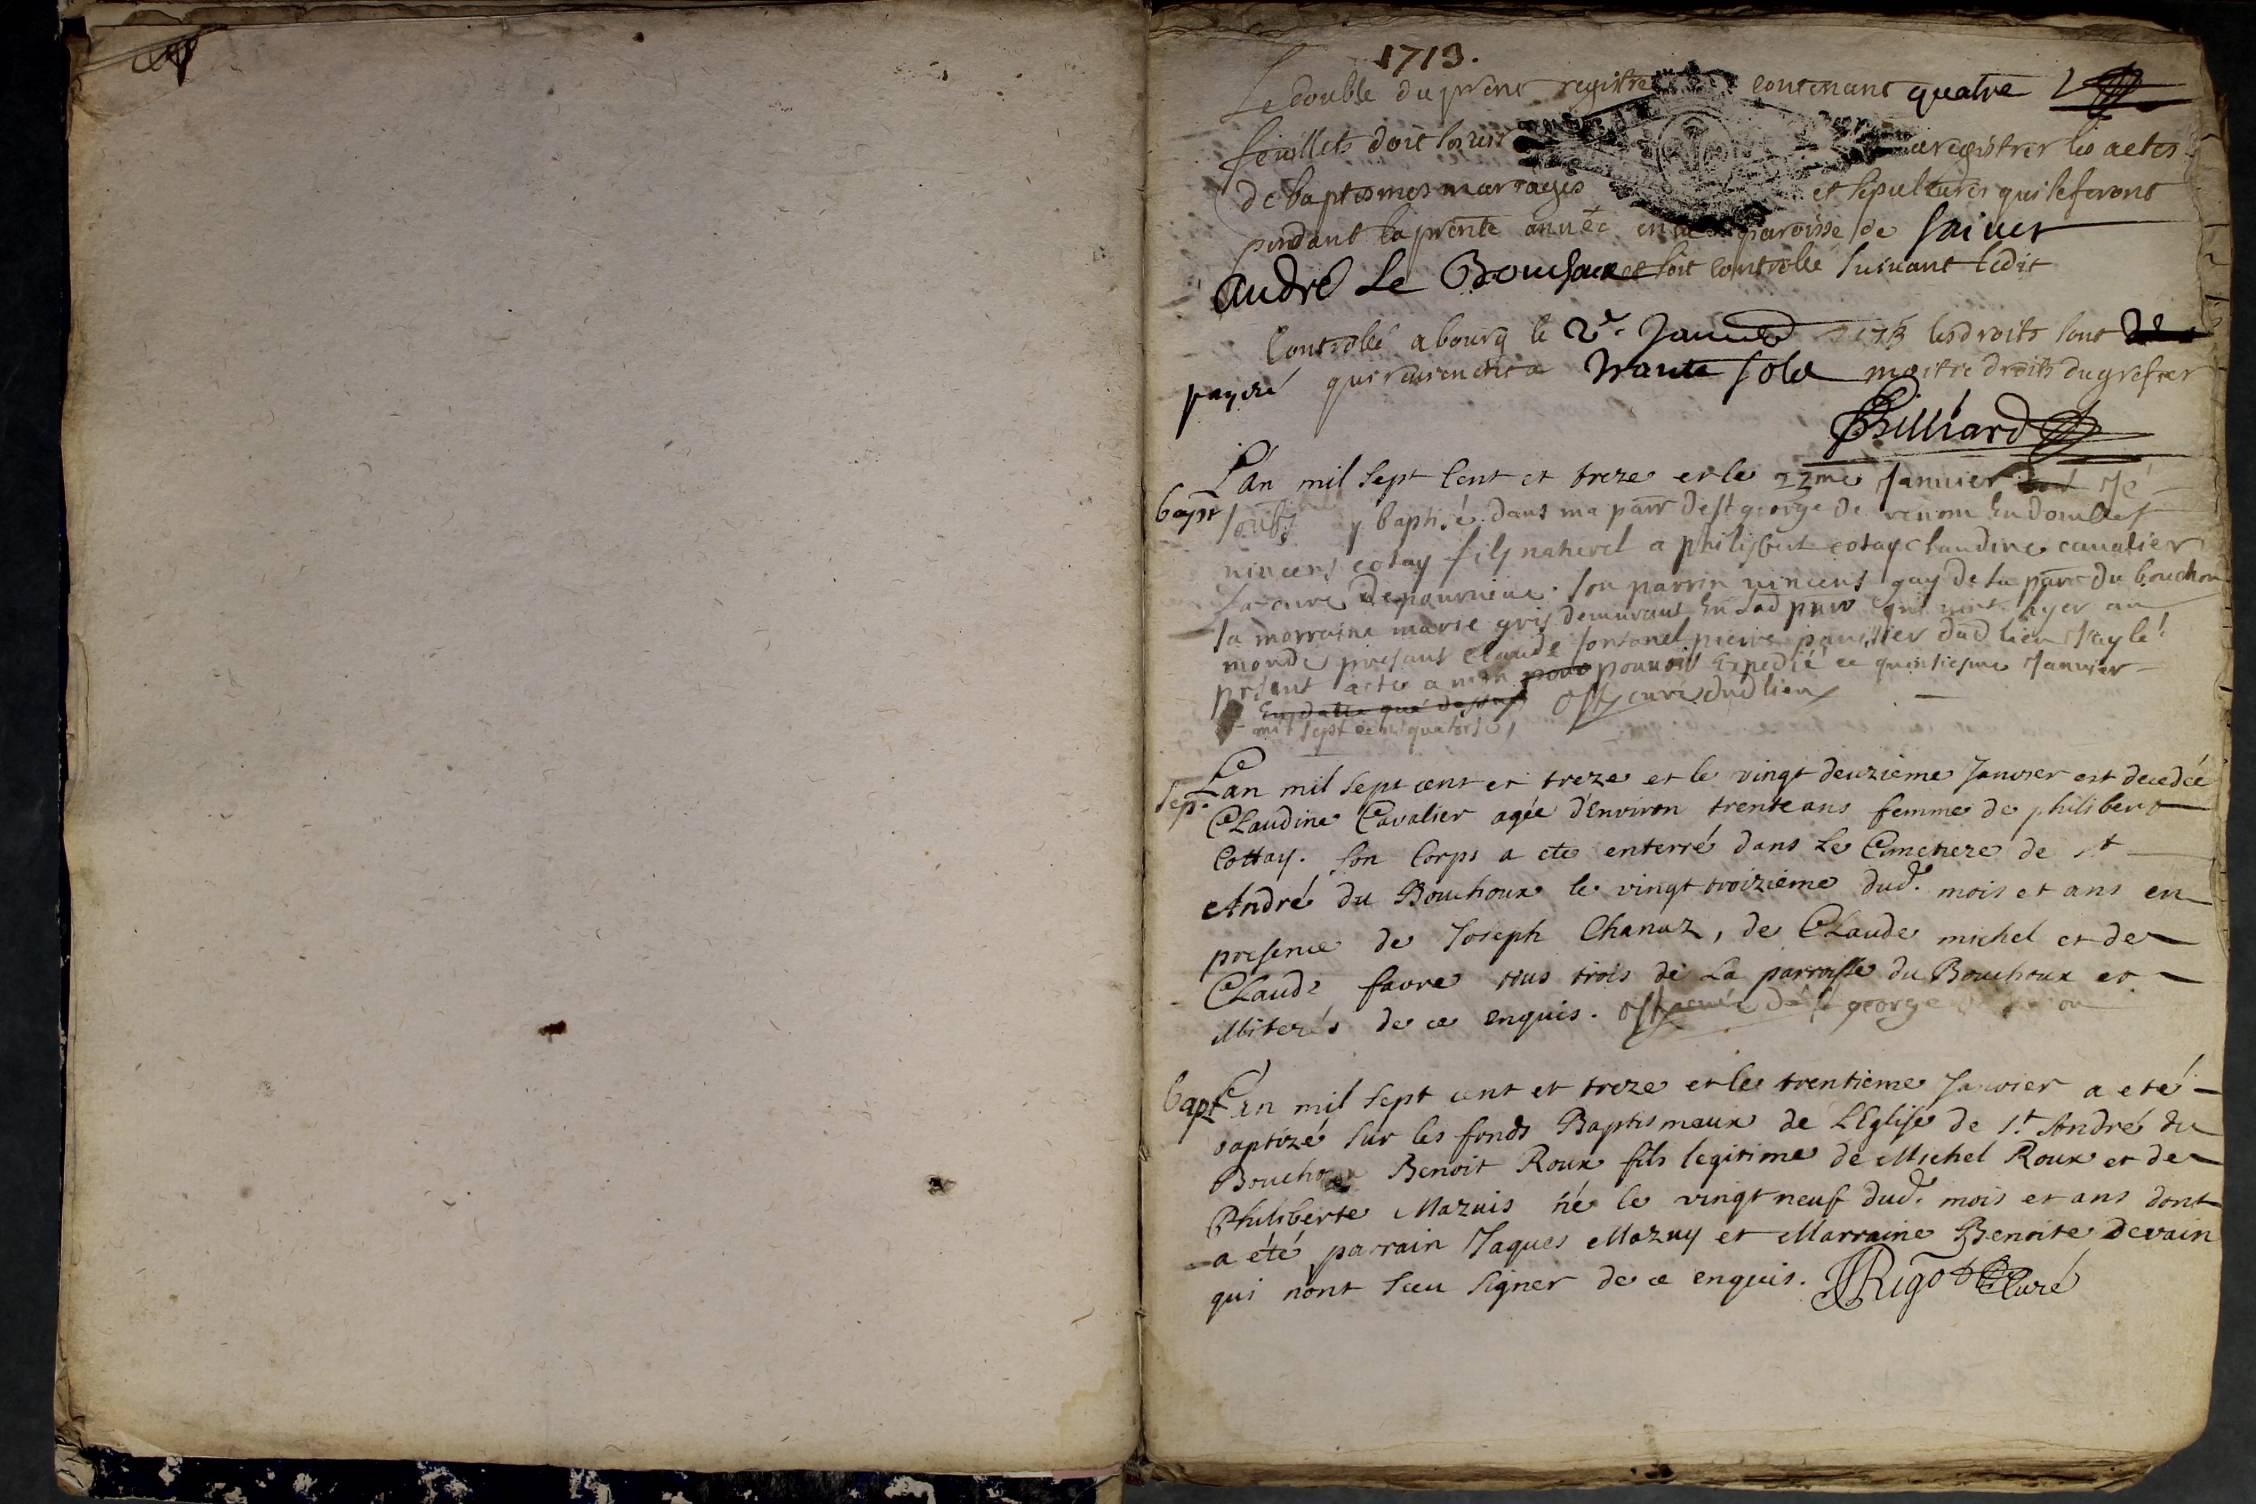 1713.
Le double du prent registre contenant quatre
feuillets doit servir enregistrer les actes
de baptesmes mariages et sepultures qui se feront
pendant la prente année en la paroisse de sainct
André Le Bouchoux et soit controllé suivant ledit
Controllé a bourg le 2e. Janvier les droits sont
payéz qui reviennent a trante sols moitié droits du grefier
Billiard
L'an mil sept Cent et treze et le 22me Janvier Jé
bapt soubs baptisé dans ma parr de st george de renom En dombes
vincens cotay fils naturel a philisbert cotay claudine cavalier
sa parrin vincens gay de la parr du bouchou
sa marraine marie gris demurant En lad parr qui vint hyer au
monde presant claude pierre dud lieu J'ay le
present acte a pouvoir Expedié ce quinsiesme Janvier
En datte que dessus curé dud lieu
mil sept cent quatorse
Lan mil sept cent et treze et le vingt deuzieme Janvier est decedée
sep. Claudine Cavalier agée d'environ trente ans femme de philibert
Cottay. son Corps a eté enterré dans Le Cimetiere de st
André du Bouchoux le vingt troizieme dud. mois et ans en
presence de Joseph Chanaz, de Claude michel et de
Claude favre tous trois de La parroisse du Bouchoux et
illiterés de ce enquis. curé de st george
bapt L'an mil sept cent et treze et le trentieme Janvier a eté
baptizé sur les fonds Baptismaux de L'Eglise de St. André du
Bouchoux Benoit Roux fils legitime de Michel Roux et de
Philiberte Mazuis né le vingt neuf dud. mois et ans dont
a été parrain Jaques Mazuy et Marraine Benoite Devain
qui nont sceu signer de ce enquis. Rigod Curé